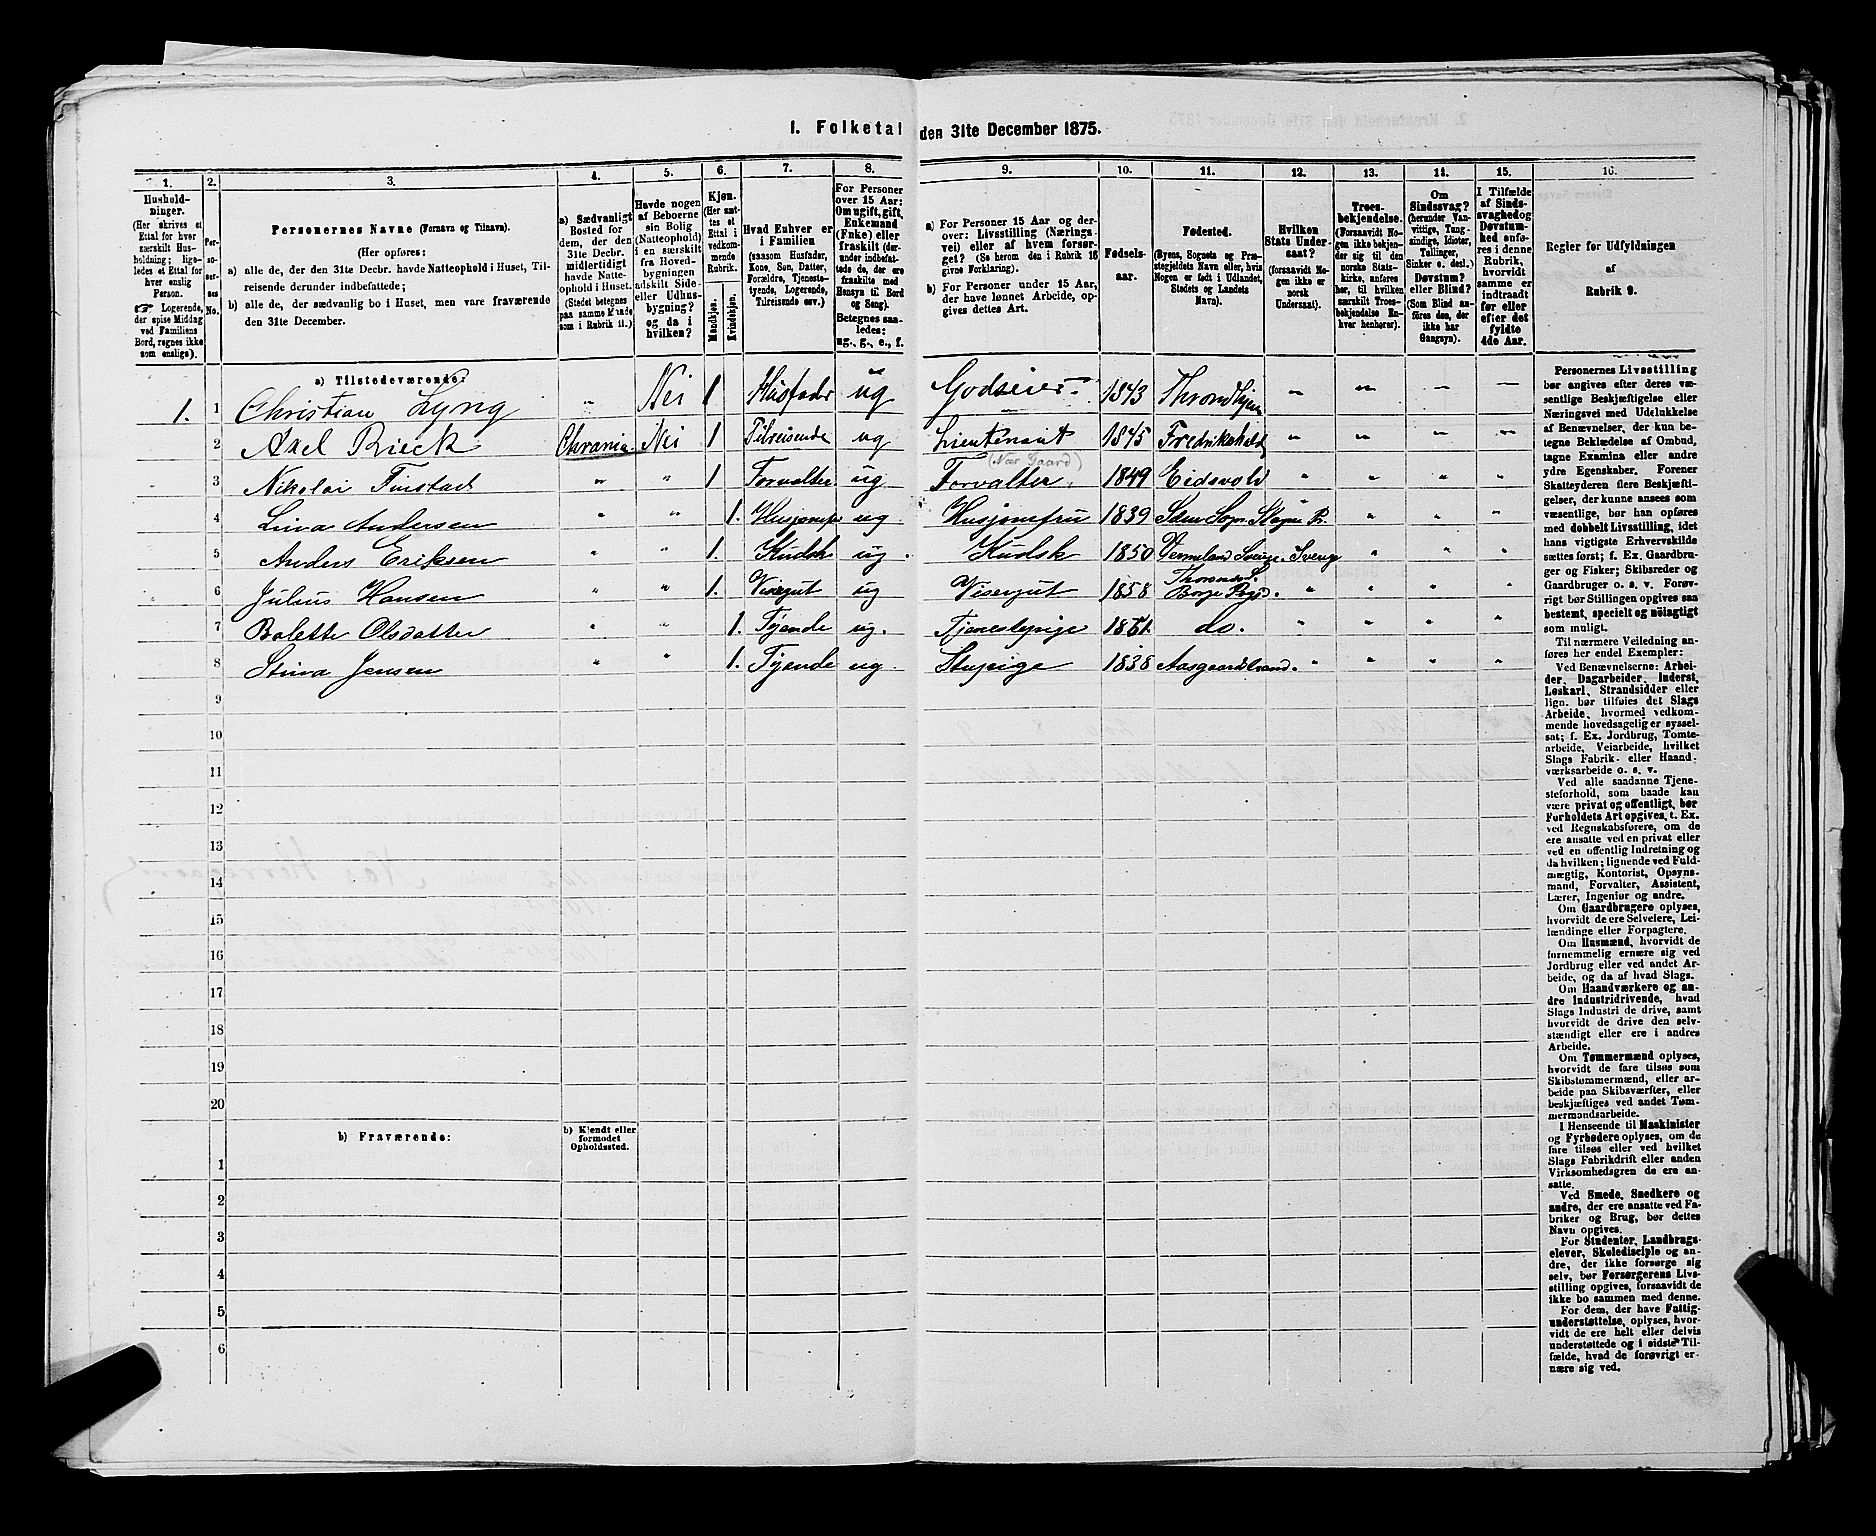 I. Folketal den 31te December 1875.
1. 2. 3. 4. 5. 6. 7. 8. 9. 10. 11. 12. 13. 14. 15. 16.
Hushold-
ninger.
(Her skrives et
Ettal for hver
særskilt Hus-
holdning; lige-
ledes et Ettal for
hver enslig
Person.
☞ Logerende,
der spise Middag
ved Familiens
Bord, regnes ikke
som enslige).
Per-
so-
ner-
nes
No.
Personernes Navne (Fornavn og Tilnavn).
(Her opføres:
a) alle de, der den 31te Decbr. havde Natteophold i Huset, Til-
reisende derunder indbefattede;
b) alle de, der sædvanlig bo i Huset, men vare fraværende
den 31te December.
a) Sædvanligt
Bosted for
dem, der den
31te Decbr.
midlertidigt
havde Natte-
ophold i Huset.
(Stedet betegnes
paa samme Maade
som i Rubrik 11.)
Havde nogen
af Beboerne
sin Bolig
(Natteophold)
i en særskilt
fra Hoved-
bygningen
adskilt Side-
eller Udhus-
bygning?
og da i
hvilken?
Kjøn.
(Her sæt-
tes et
Ettal i
vedkom-
mende
Rubrik.
Mandkjøn.
Kvindekjøn.
Hvad Enhver er
i Familien
(saasom Husfader,
Kone, Søn, Datter,
Forældre, Tjeneste-
tyende, Logerende,
Tilreisende osv.)
For Personer
over 15 Aar:
Om ugift, gift,
Enkemand
(Enke) eller
fraskilt (der-
under indbefat-
tede de, der ere
fraskilte med
Hensyn til Bord
og Seng).
Betegnes saa-
ledes:
ug., g., e., f.
a) For Personer 15 Aar og der-
over: Livsstilling (Nærings-
vei) eller af hvem forsør-
get? (Se herom den i Rubrik 16
givne Forklaring).
b) For Personer under 15 Aar,
der have lønnet Arbeide, op-
gives dettes Art.
Fødsels-
aar.
Fødested.
(Byens, Sognets og Præ-
stegjeldets Navn eller, hvis
Nogen er født i Udlandet,
Stedets og Landets
Navn).
Hvilken
Stats Under-
saat?
(forsaavidt No-
gen ikke er
norsk
Undersaat).
Troes-
bekjendelse.
(Forsaavidt No-
gen ikke bekjen-
der sig til den
norske Stats-
kirke, anføres
her, til hvilken
særskilt Troes-
bekjendelse En-
hver henhører).
Om
Sindssvag?
(herunder Van-
vittige, Tung-
sindige, Idioter,
Tullinger,
Sinker o. desl.)
Døvstum?
eller Blind?
(Som Blind an-
føres den, der
ikke har
Gangsyn).
I Tilfælde
af Sinds-
svaghed og
Døvstum-
hed anfø-
res i denne
Rubrik,
hvorvidt
samme er
indtraadt
før eller
efter det
fyldte
4de Aar.
Regler for Udfyldningen
af
Rubrik 9.
a) Tilstedeværende:
1. 1 Christian Lyng " Nei 1 Husfader ug Godseier 1843 Throndhjem " " " "
2 Axel Rieck Chrania. Nei 1 Tilreisende ug Lieutenant 1845 Fredrikshald " " " "
(Næs Gaard)
3 Nikolai Finstad " " 1 Forvalter ug Forvalter 1849 Eidsvold " " " "
4 Lina Andersen " " 1. Husjomfru ug Husjomfru 1839 Sem Sogn Slagen Pr. " " " "
5 Anders Eriksen " " 1. Kudsk ug Kudsk 1850 Vermeland Sverige. Sverige " " "
6 Julius Hansen " " 1. Visergut ug Visergut 1858 Borge Prgd. " " " "
7 Bolette Olsdatter " " 1. Tjende ug. Tjenestepige 1851. do. " " " "
8 Stina Jensen " " 1. Tjende ug Stupige 1838 Aasgaardstrand. " " " "
9
10
11
12
13
14
15
16
17
18
19
20
b) Fraværende:
b) Kjendt eller
formodet
Opholdssted.
1
2
3
4
5
6
Personernes Livsstilling
bør angives efter deres væ-
sentlige Beskjæftigelse eller
Næringsvei med Udelukkelse
af Benævnelser, der kun be-
tegne Beklædelse af Ombud,
tagne Examina eller andre
ydre Egenskaber. Forener
Skatteyderen flere Beskjæfti-
gelser, der kunne ansees som
væsentlige, bør han opføres
med dobbelt Livsstilling, idet
hans vigtigste Erhvervskilde
sættes først; f. Ex. Gaardbru-
ger og Fisker; Skibsreder og
Gaardbruger o. s. v. Forøv-
rigt bør Stillingen opgives saa
bestemt, specielt og nöiagtigt
som muligt.
Til nærmere Veiledning an-
føres her endel Exempler:
Ved Benævnelserne: Arbei-
der, Dagarbeider, Inderst,
Løskarl, Strandsidder eller
lign. bør tilføies det Slags
Arbeide, hvormed vedkom-
mende hovedsagelig er syssel-
sat; f. Ex. Jordbrug, Tomte-
arbeide, Veiarbeide, hvilket
Slags Fabrik- eller Haand-
værksarbeide o. s. v.
Ved alle saadanne Tjene-
steforhold, som baade kan
være privat og offentligt, bør
Forholdets Art opgives, t. Ex.
ved Regnskabsførere, om de
ere ansatte ved en privat eller
ved en offentlig Indretning og
da hvilken; lignende ved Fuld-
mægtig, Kontorist, Opsyns-
mand, Forvalter, Assistent,
Lærer, Ingeniør og andre.
Om Gaardbrugere oplyses,
hvorvidt de ere Selveiere, Lei-
lændinge eller Forpagtere.
Om Husmænd, hvorvidt de
fornemmelig ernære sig ved
Jordbrug eller ved andet Ar-
beide, og da af hvad Slags.
Om Haandværkere og an-
dre Industridrivende, hvad
Slags Industri de drive, samt
hvorvidt de drive den selv-
stændigt eller ere i andres
Arbeide.
Om Tømmermænd oplyses,
hvorvidt de fare tilsøs som
Skibstømmermænd, eller ar-
beide paa Skibsværfter, eller
beskjæftiges ved andet Tøm-
mermandsarbeide.
I Henseende til Maskinister
og Fyrbødere oplyses, om de
fare tilsøs eller ved hvilket
Slags Fabrikdrift eller anden
Virksomhedsgren de ere an-
satte.
Ved Smede, Snedkere og
andre, der ere ansatte ved Fa-
briker og Brug, bør dettes
Navn opgives.
For Studenter, Landbrugs-
elever, Skoledisciple og an-
dre, der ikke forsørge sig
selv, bør Forsørgerens Livs-
stilling opgives, forsaavidt de
ikke bo sammen med denne.
For dem, der have Fattig-
understøttelse, oplyses, hvor-
vidt de ere helt eller delvis
understøttede og i sidste Til-
fælde, hvad de forøvrigt er-
nære sig ved.